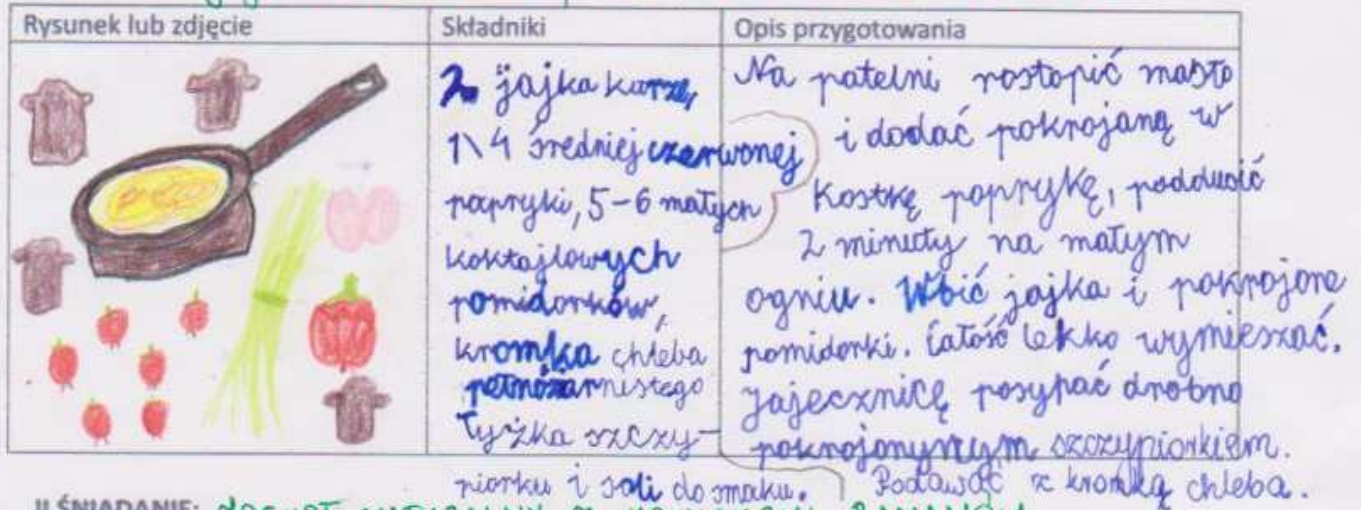 Rysunek lub zdjęcie
Składniki
Opis przygotowania
2 jajka kurze,
1\4 średniej czerwonej
papryki, 5-6 małych
koktajlowych
pomidorków,
kromka chleba
pełnoziarnistego
łyżka szczy-
piorku i soli do smaku.
Na patelni rostopić masło
i dodać pokrojaną w
kostkę paprykę, poddusić
2 minuty na małym
ogniu. Wbić jajka i pokrojone
pomidorki. Całość lekko wymieszać.
Jajecznicę posypać drobno
pokrojonym szczypiorkiem.
Podawać z kromką chleba.
II ŚNIADANIE: JOGURT NATURALNY Z